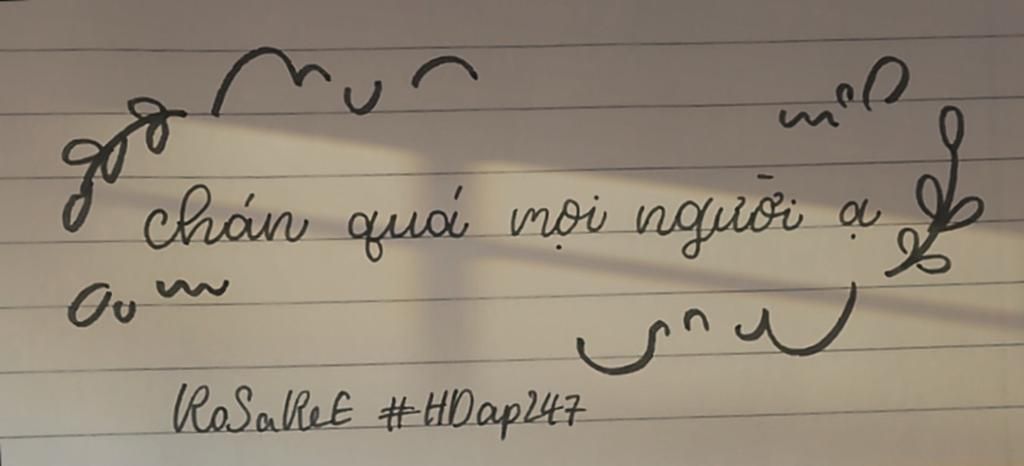 chán quá mọi người ạ
RoSaReE #HDap247